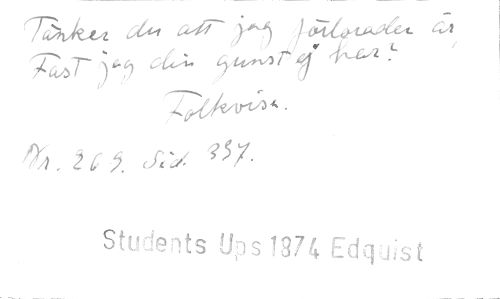 Tänker du att jag förlorader är,
Fast jag din gunst ej har?
Folkvisa.
Nr. 269. Sid. 337.
Students Ups 1874 Edquist